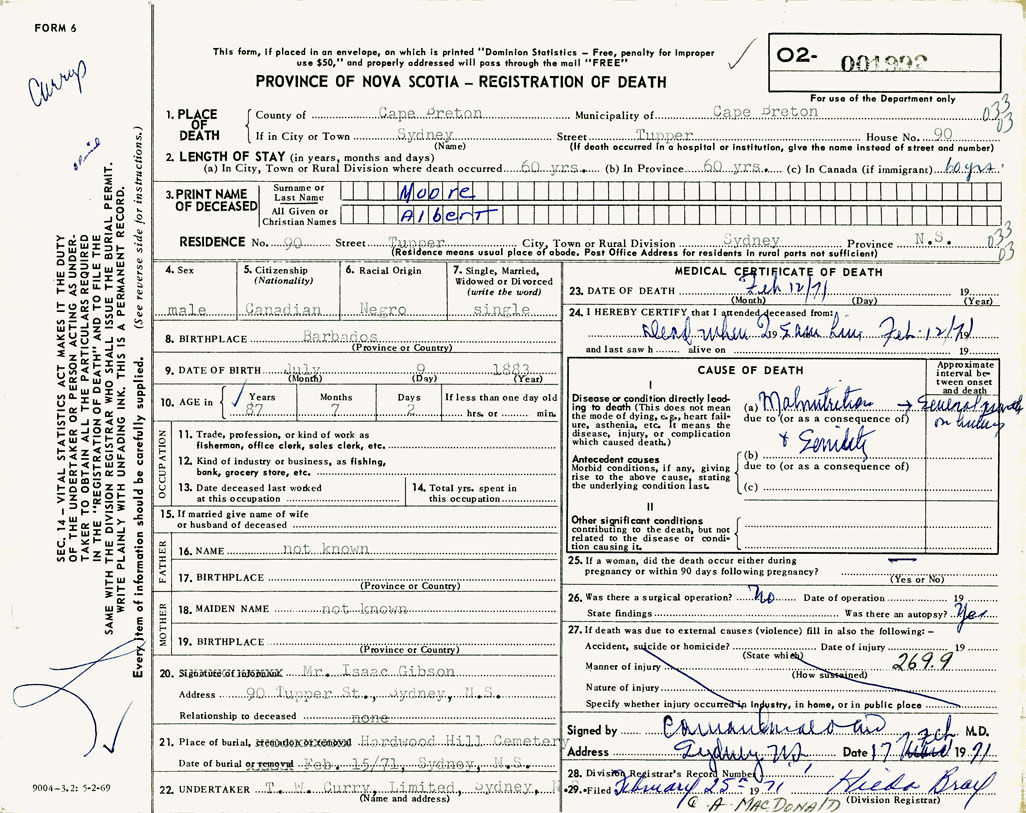 FORM 6
Curry
This form, if placed in an envelope, on which is printed "Dominion Statistics – Free, penalty for improper
use $50," and properly addressed will pass through the mail "FREE"
PROVINCE OF NOVA SCOTIA – REGISTRATION OF DEATH
02- 001992
For use of the Department only
033
03
1. PLACE OF DEATH
County of Cape Breton Municipality of Cape Breton
If in City or Town Sydney Street Tupper House No. 90
(Name) (If death occurred in a hospital or institution, give the name instead of street and number)
2. LENGTH OF STAY (in years, months and days)
(a) In City, Town or Rural Division where death occurred 60 yrs. (b) In Province 60 yrs. (c) In Canada (if immigrant) 60 yrs.
3. PRINT NAME OF DECEASED
Surname or Last Name Moore
All Given or Christian Names Albert
RESIDENCE No. 90 Street Tupper City, Town or Rural Division Sydney Province N.S.
033
03
(Residence means usual place of abode. Post Office Address for residents in rural parts not sufficient)
4. Sex
male
5. Citizenship
(Nationality)
Canadian
6. Racial Origin
Negro
7. Single, Married,
Widowed or Divorced
(write the word)
single
8. BIRTHPLACE Barbados
(Province or Country)
9. DATE OF BIRTH July 9 1883
(Month) (Day) (Year)
10. AGE in
Years Months Days If less than one day old
87 7 2 hrs. or min.
OCCUPATION
11. Trade, profession, or kind of work as
fisherman, office clerk, sales clerk, etc.
12. Kind of industry or business, as fishing,
bank, grocery store, etc.
13. Date deceased last worked
at this occupation
14. Total yrs. spent in
this occupation
15. If married give name of wife
or husband of deceased
FATHER
16. NAME not known
17. BIRTHPLACE
(Province or Country)
MOTHER
18. MAIDEN NAME not known
19. BIRTHPLACE
(Province or Country)
20. Signature of informant Mr. Isaac Gibson
Address 90 Tupper St., Sydney, N.S.
Relationship to deceased none
21. Place of burial, cremation or removal Hardwood Hill Cemetery
Date of burial or removal Feb. 15/71, Sydney, N.S.
22. UNDERTAKER T. W. Curry, Limited, Sydney, N
(Name and address)
MEDICAL CERTIFICATE OF DEATH
23. DATE OF DEATH Feb 12/71 19
(Month) (Day) (Year)
24. I HEREBY CERTIFY that I attended deceased from:
Dead when I saw him Feb. 12/71 19
and last saw h alive on 19
CAUSE OF DEATH
Approximate
interval be-
tween onset
and death
I
Disease or condition directly lead-
ing to death (This does not mean
the mode of dying, e.g., heart fail-
ure, asthenia, etc. It means the
disease, injury, or complication
which caused death.)
(a) Malnutrition → General
due to (or as a consequence of)
& Senility
Antecedent causes
Morbid conditions, if any, giving
rise to the above cause, stating
the underlying condition last.
(b)
due to (or as a consequence of)
(c)
II
Other significant conditions
contributing to the death, but not
related to the disease or condi-
tion causing it.
25. If a woman, did the death occur either during
pregnancy or within 90 days following pregnancy?
(Yes or No)
26. Was there a surgical operation? No Date of operation 19
State findings Was there an autopsy? Yes
27. If death was due to external causes (violence) fill in also the following: –
Accident, suicide or homicide? Date of injury 19
(State which)
269.9
Manner of injury
(How sustained)
Nature of injury
Specify whether injury occurred in Industry, in home, or in public place
Signed by M.D.
Address Sydney NS Date 17 Feb 1971
28. Division Registrar's Record Number
29. Filed February 25th 1971 Hilda Bray
(Division Registrar)
@ A MACDONALD
SEC. 14 – VITAL STATISTICS ACT MAKES IT THE DUTY
OF THE UNDERTAKER OR PERSON ACTING AS UNDER-
TAKER TO OBTAIN ALL THE PARTICULARS REQUIRED
IN THE "REGISTRATION OF DEATH" AND TO FILE THE
SAME WITH THE DIVISION REGISTRAR WHO SHALL ISSUE THE BURIAL PERMIT.
WRITE PLAINLY WITH UNFADING INK. THIS IS A PERMANENT RECORD.
Every item of information should be carefully supplied. (See reverse side for instructions.)
9004-3.2: 5-2-69